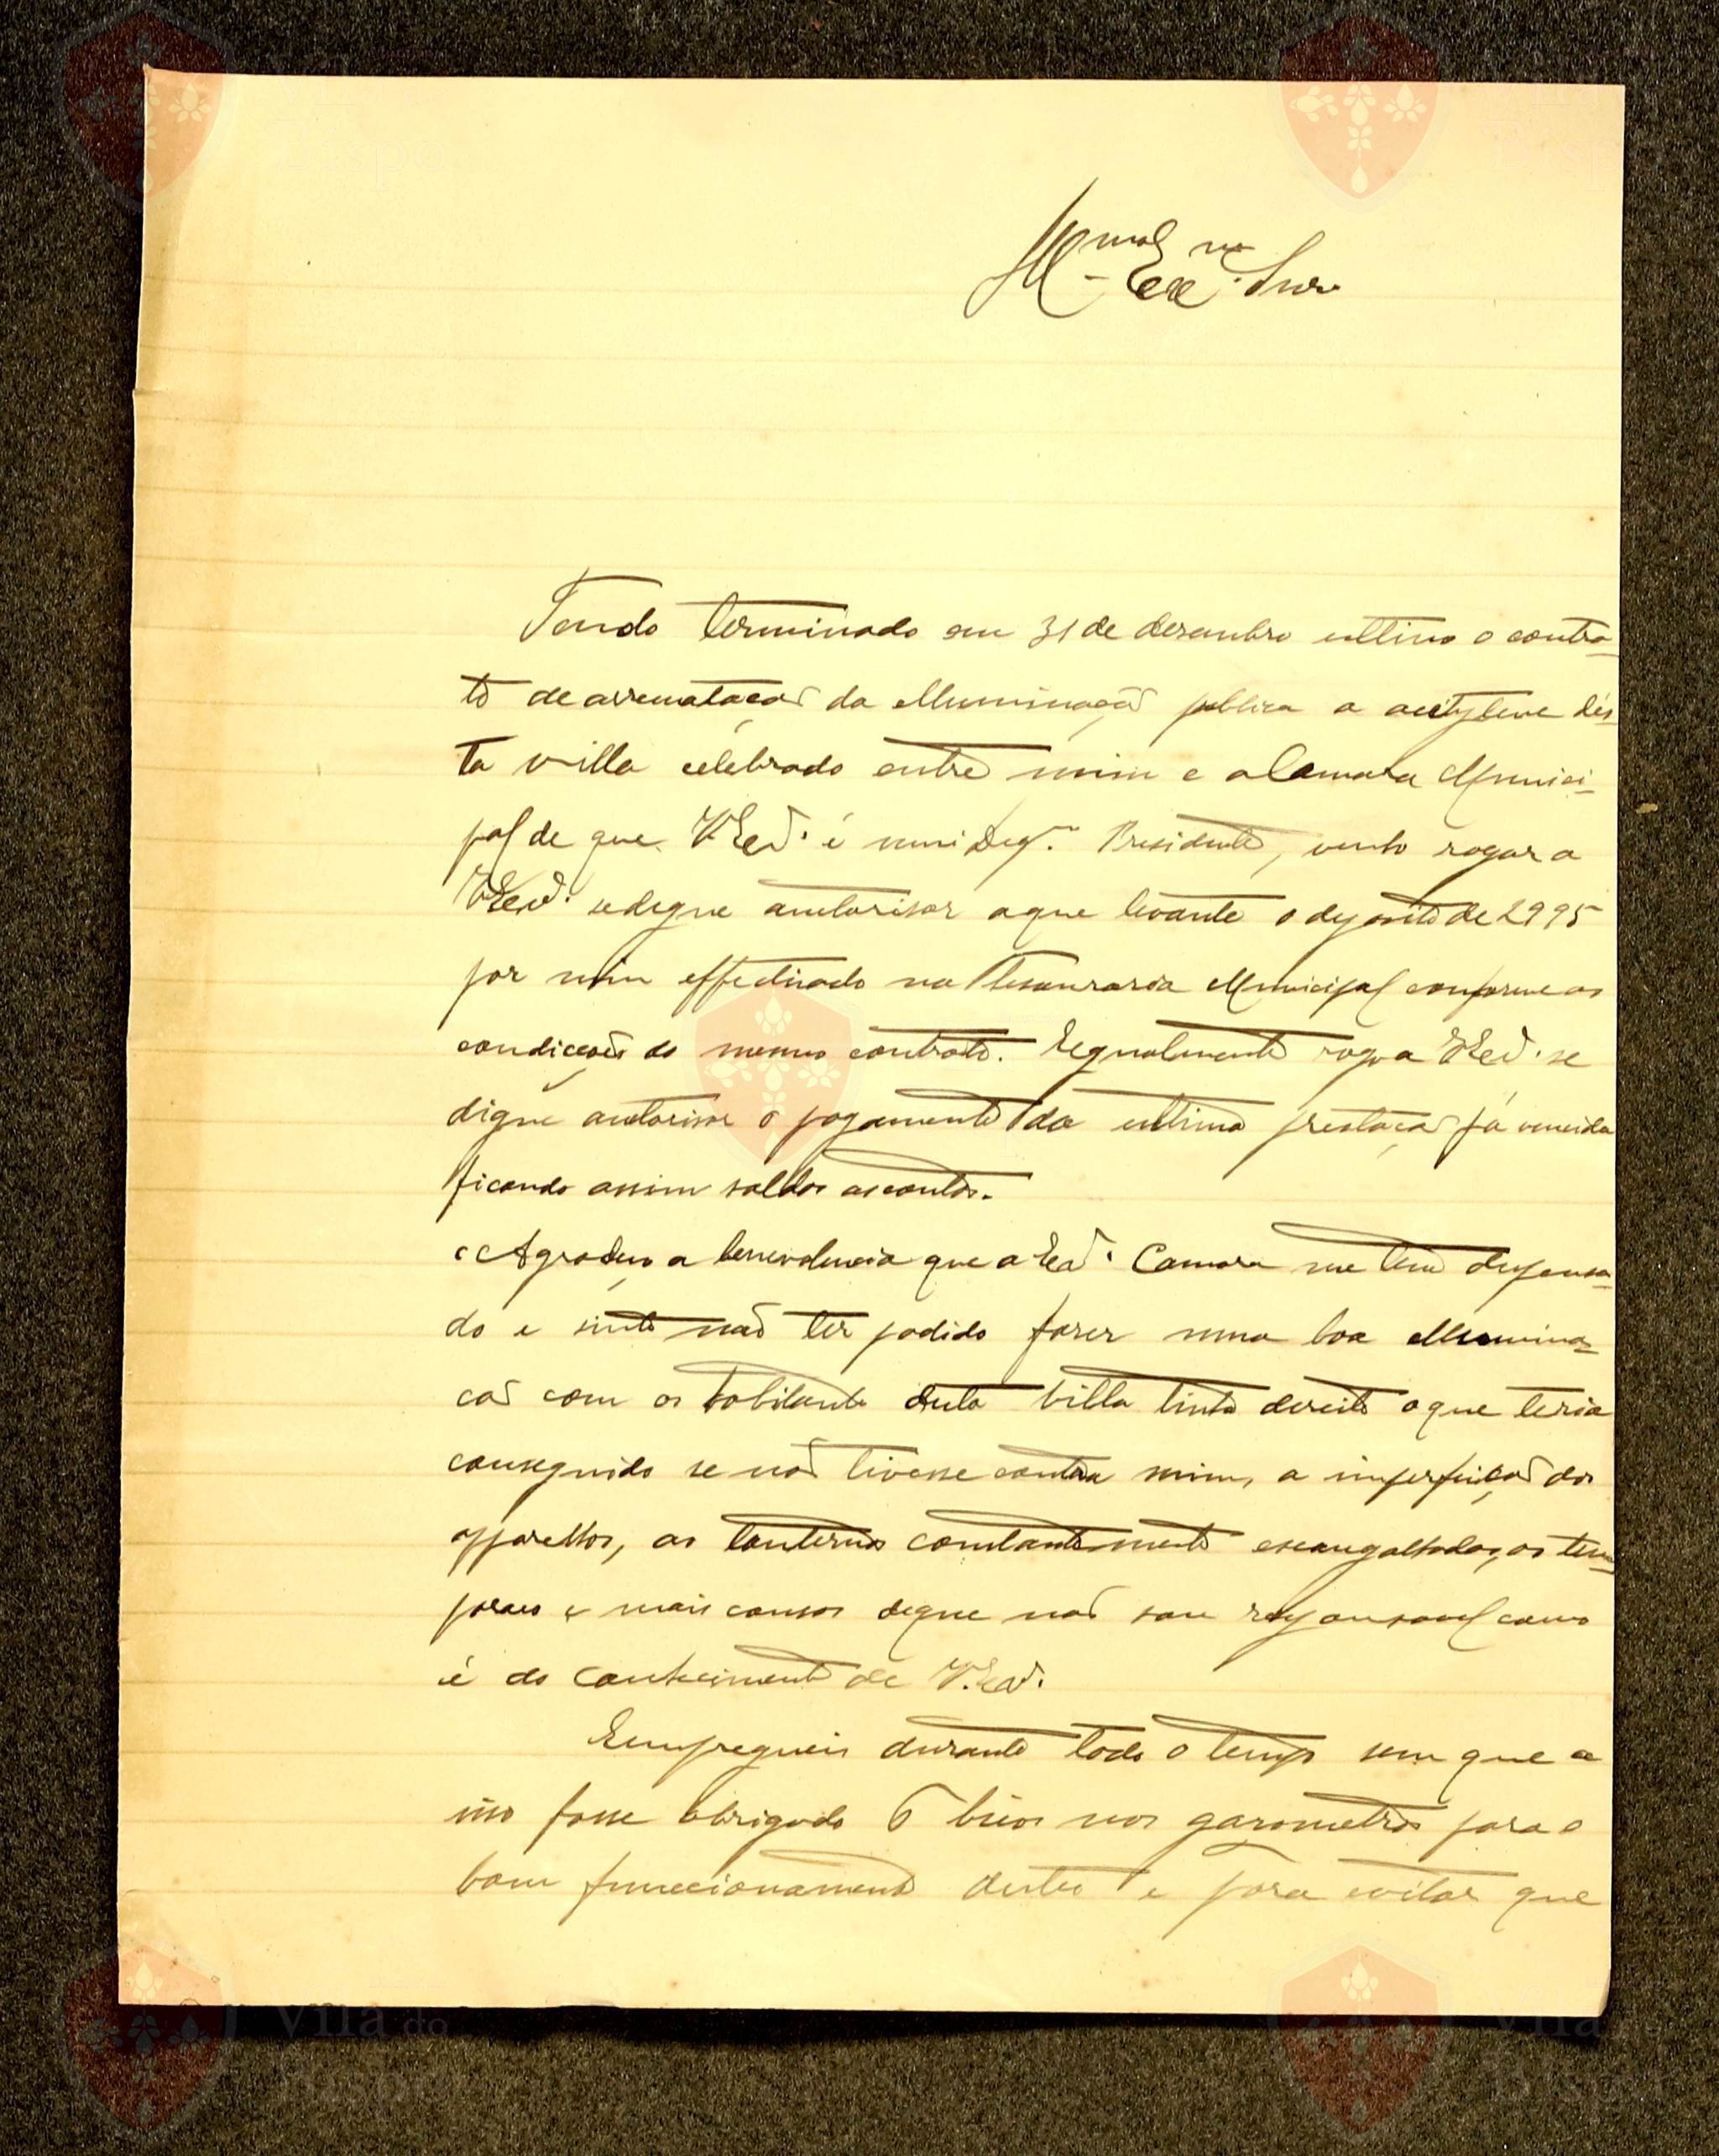 Illmo Exmo Snr.
Tendo terminado em 31 de dezembro ultimo o contra-
to de arrematação da illuminação publica a acitylene dés-
ta villa celebrado entre mim e a Camara Munici-
pal de que VExa. é mui Degno. Presidente, venho rogar a
VExa. se degne auctorisar a que levante o deposito de 2995
por mim effectuado na Tesouraria Municipal conforme as
condicções do mesmo contrato. Egualmente rogo a VExa. se
digne auctorisar o pagamento da ultima prestação já vencida
ficando assim saldas as contas.
Agradeço a benevolencia que a Exa. Camara me tem dispensa-
do e sinto não ter podido fazer uma boa illumina-
ção com os habitantes desta villa tinha direito o que teria
conseguido se não tivesse contra mim, a imperfeição dos
apparelhos, as lanternas constantemente escangalhadas, os tem-
poraes e mais causas de que não sou responsavel como
é do conhecimento de V.Exa.
Empreguei durante todo o tempo sem que a
isso fosse obrigado 6 bicos nos gazometros para o
bom funccionamento destes e para evitar que
Vila do
Bispo